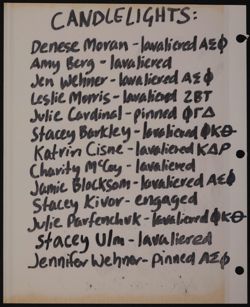 CANDLELIGHTS:
Denese Moran - lavaliered ΑΞΦ
Amy Berg - lavaliered
Jen Wehner - lavaliered ΑΣΦ
Leslie Morris - lavaliered ΖΒΤ
Julie Cardinal - pinned ΦΓΔ
Stacey Barkley - lavaliered ΦΚΘ
Katrin Cisne - lavaliered ΚΔΡ
Charity McCoy - lavaliered
Jamie Blocksom - lavaliered ΑΣΦ
Stacey Kivor - engaged
Julie Parfenchuk - lavaliered ΦΚΘ
Stacey Ulm - lavaliered
Jennifer Wehner - pinned ΑΣΦ